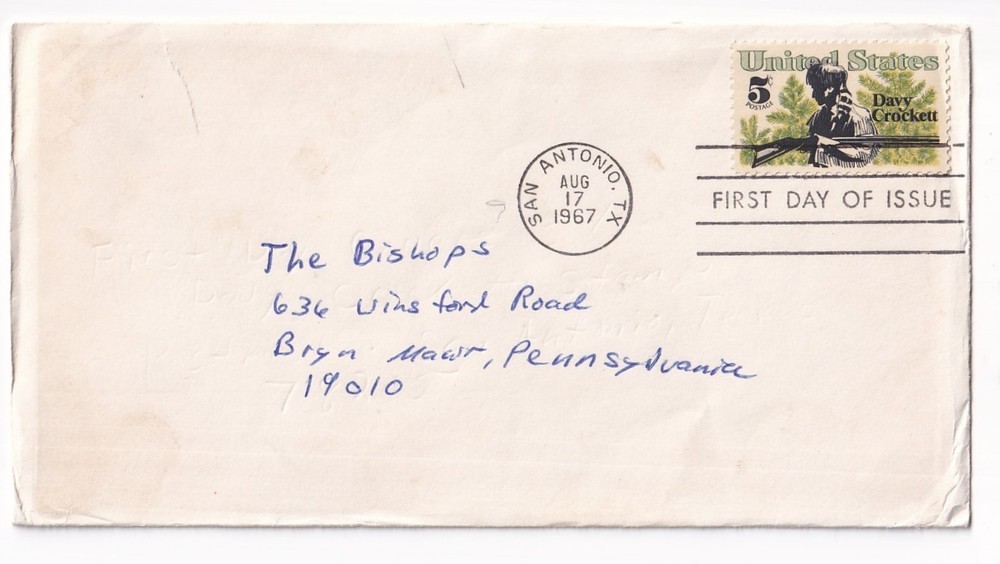 United States
5¢
POSTAGE
Davy
Crockett
SAN ANTONIO, TX
AUG
17
1967
FIRST DAY OF ISSUE
The Bishops
636 Winsford Road
Bryn Mawr, Pennsylvania
19010